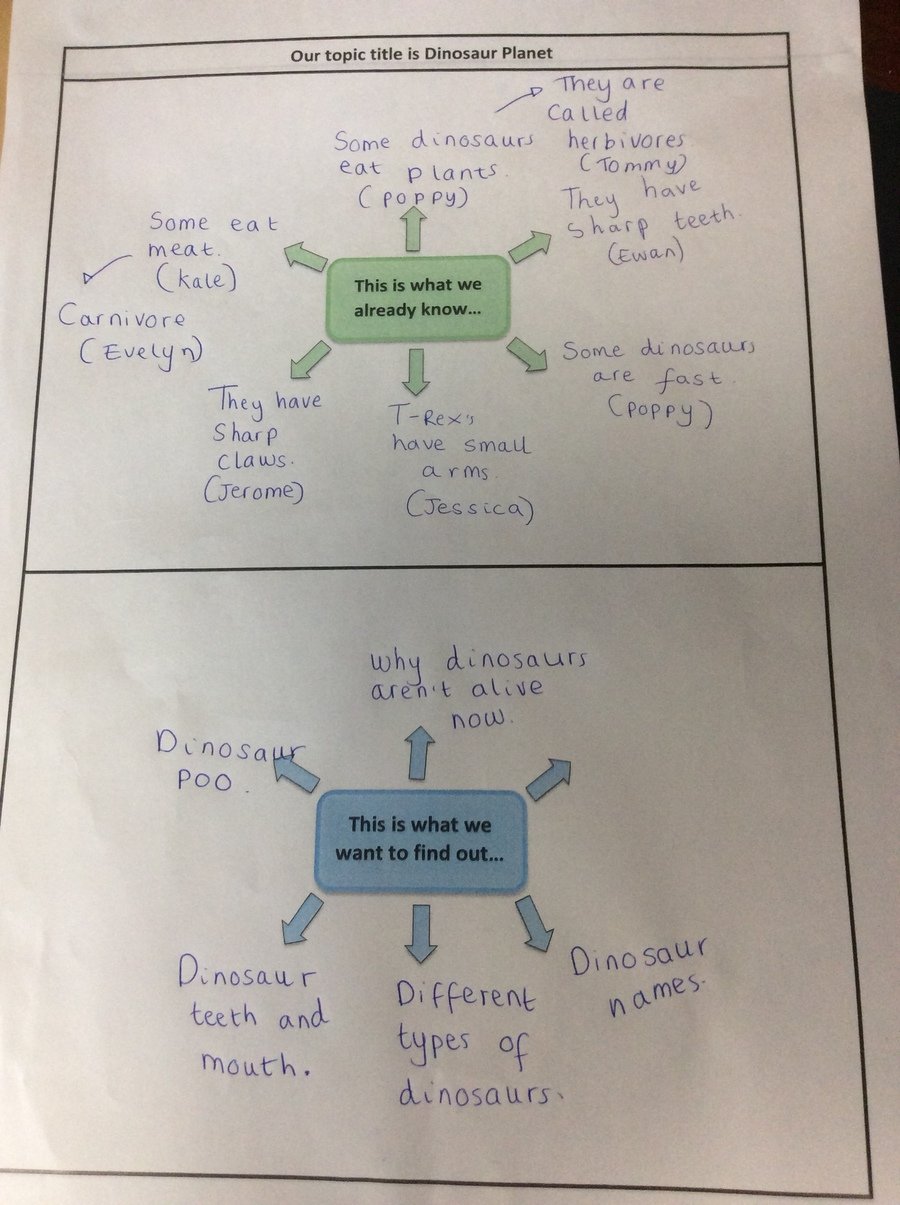 Our topic title is Dinosaur Planet
They are
Called
herbivores
(Tommy)
Some dinosaurs
eat plants.
(Poppy)
They have
sharp teeth.
(Ewan)
Some eat
meat.
(Kale)
Carnivore
(Evelyn)
This is what we
already know...
Some dinosaurs
are fast.
(Poppy)
They have
Sharp
claws.
(Jerome)
T-Rex's
have small
arms.
(Jessica)
why dinosaurs
aren't alive
now.
Dinosaur
Poo.
This is what we
want to find out...
Dinosaur
teeth and
mouth.
Different
types of
dinosaurs.
Dinosaur
names.